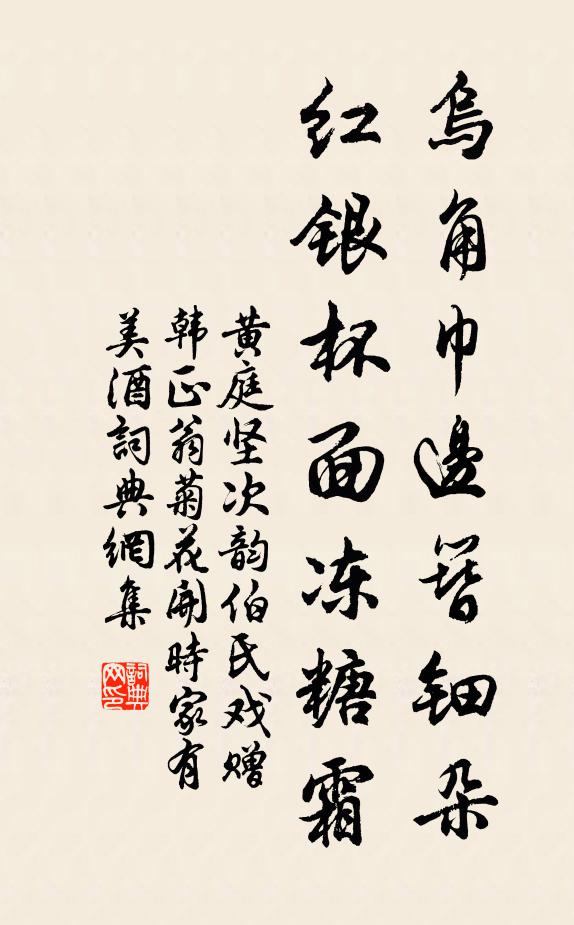 烏角巾邊簪鈿朶
红銀杯面冻糖霜
黄庭坚次韵伯氏戏赠
韩正翁菊花開時家有
美酒詞典網集
詞典网印